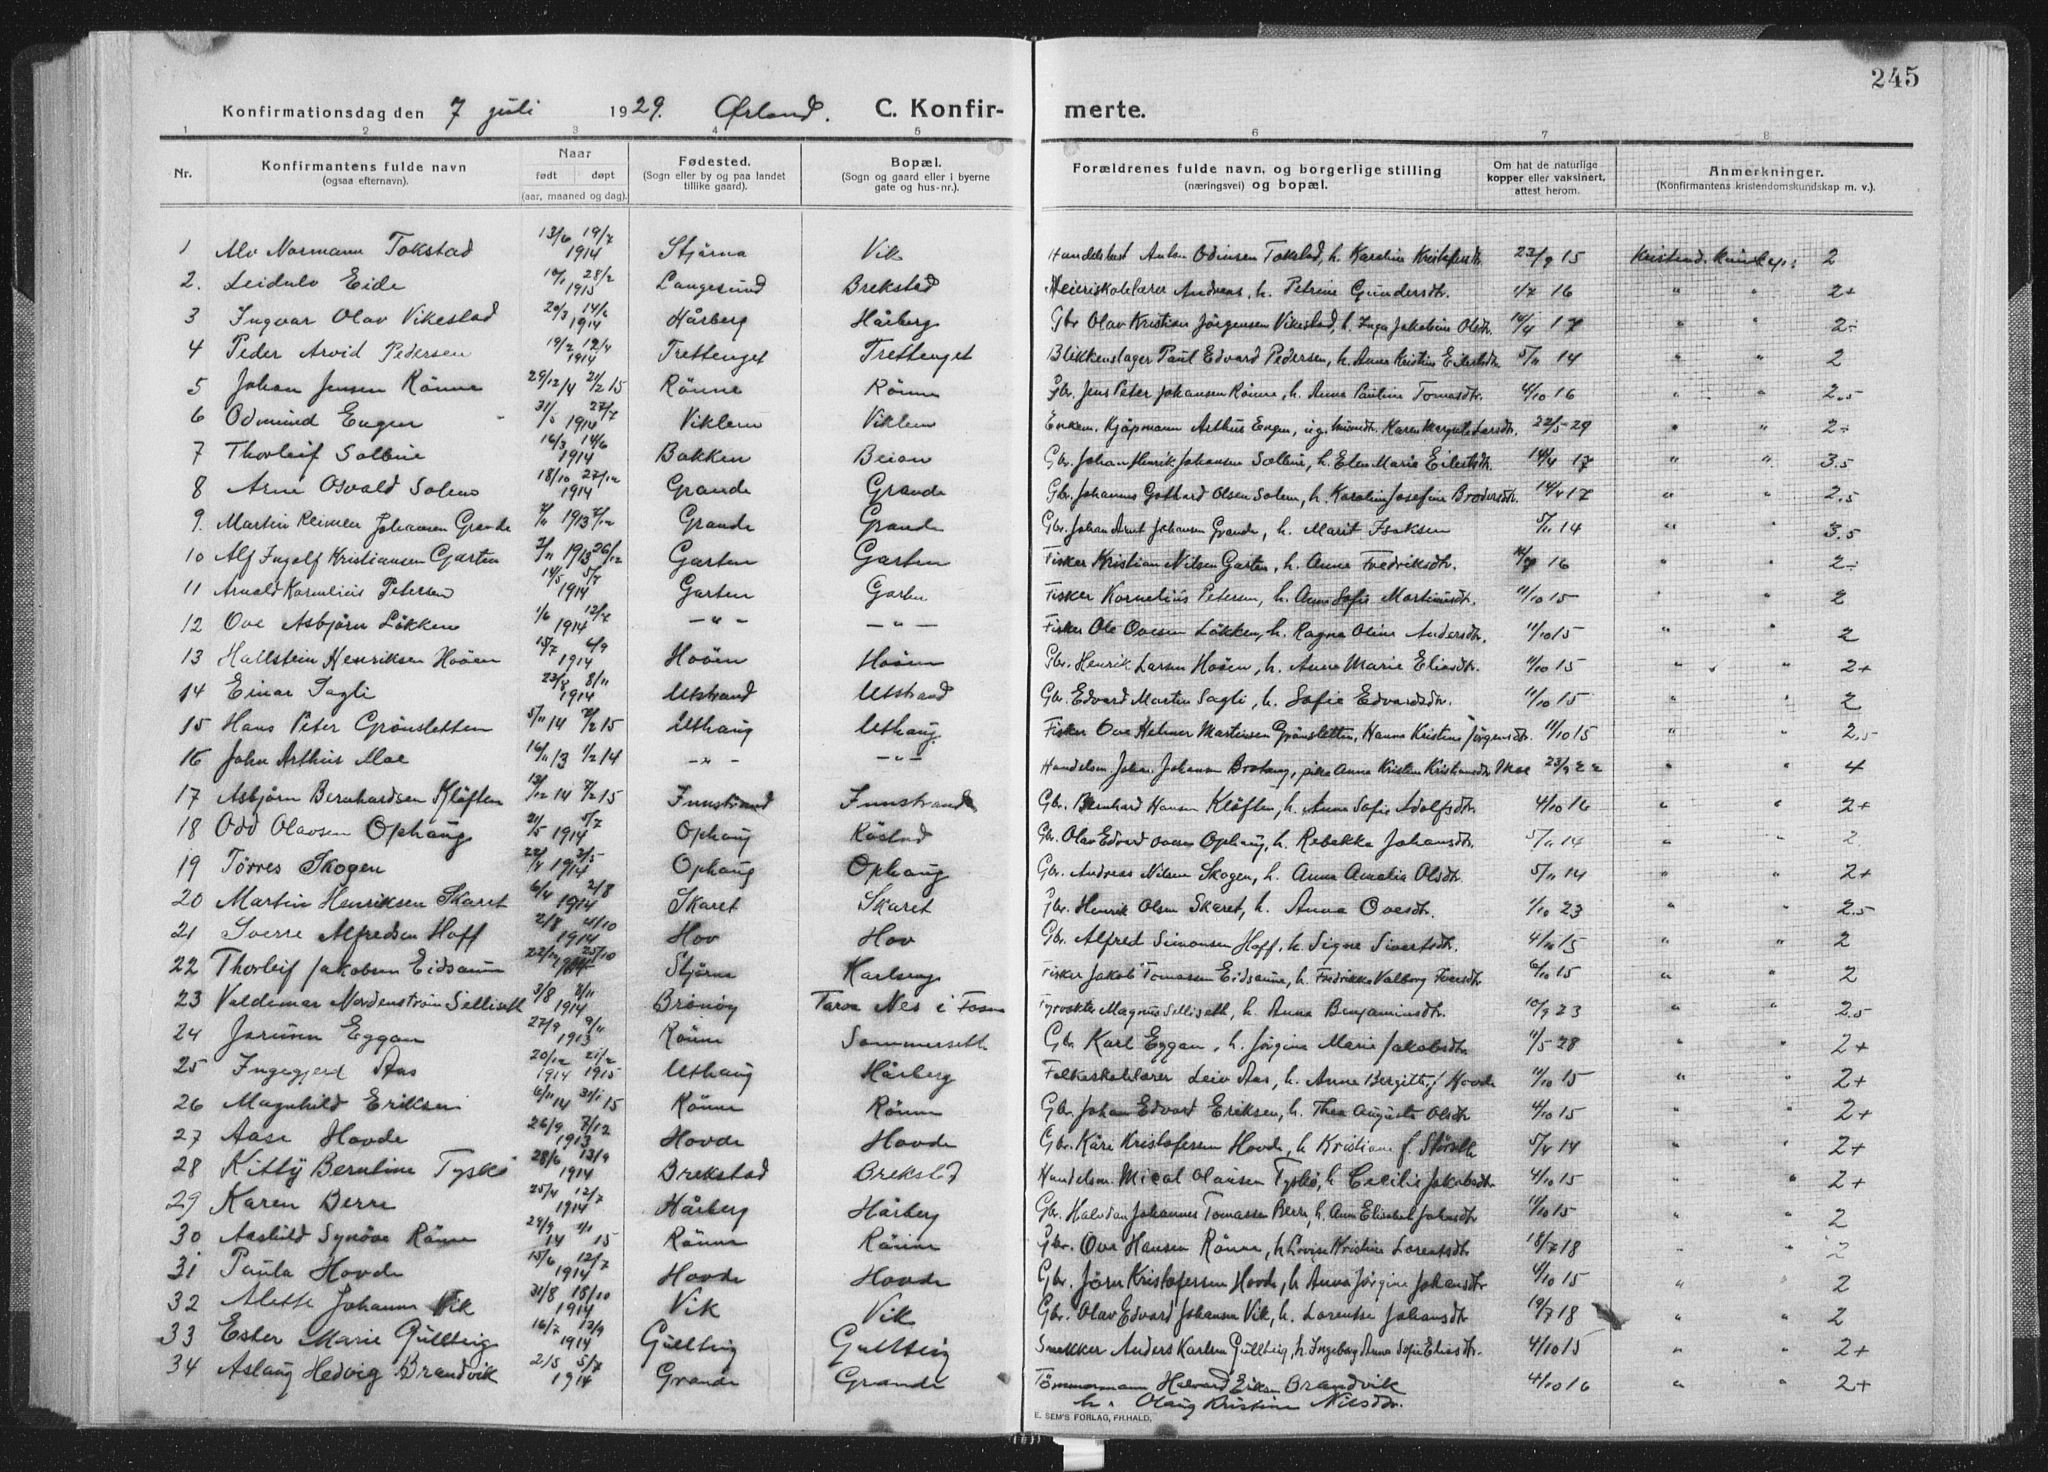 245
Konfirmationsdag den 7 juli 1929. Ørland. C. Konfirmerte.
1 2 3 4 5 6 7 8
Nr. Konfirmantens fulde navn (ogsaa efternavn). Naar født døpt (aar, maaned og dag). Fødested. (Sogn eller by og paa landet tillike gaard). Bopæl. (Sogn og gaard eller i byerne gate og hus-nr.). Forældrenes fulde navn, og borgerlige stilling (næringsvei) og bopæl. Om hat de naturlige kopper eller vaksinert, attest herom. Anmerkninger. (Konfirmantens kristendomskundskap m. v.).
1 Alv Normann Tokstad 13/6 19/7 1914 Stjørna Vik Anton Odinsen Tokstad, h. Karoline Kristofersdtr. 23/9 15 Kristend. kundskap: 2
2. Leidulv Eide 28/2 1915 Langesund Brekstad Meieriskolelærer Andreas, h. Petrine Gundersdtr. 1/7 16 " " 2+
3 Ingvar Olav Vikestad 20/3 14/6 1914 Hårberg Hårberg Gbr. Olav Kristian Jørgensen Vikestad, h. Inga Jakobine Olsdtr. 17 " " 2÷
4 Peder Arvid Pedersen 19/2 12/4 1914 Trettenget Trettenget Blikkenslager Paul Edvard Pedersen, h. Anna Kristine Eilertsdtr. 5/11 14 " " 2
5 Johan Jensen Rönne 29/12 14 21/2 15 Rönne Rönne Gbr. Jens Peter Johansen Rönne, h. Anna Pauline Tomasdtr. 4/10 16 " " 2.5
6 Odmund Engen 31/5 27/7 1914 Viklem Viklem Enkem. Kjøpmann Arthur Engen, Karen Margrete Larsdtr. 22/5-29 " " 2÷
7 Thorleif Solbue 16/3 14/6 1914 Bakken Beian Gbr. Johan Henrik Johansen h. Elen Maria Eilertsdtr. 14/4 17 " " 3.5
8 Arne Osvald Solem 18/10 27/12 1914 Grande Grande Gbr. Johannes Gotthard Olsen Solem, h. Karoline Josefine Brodersdtr. 14/4 17 " " 2.5
9. Martin Reimer Johansen Grande 1913 Grande Grande Gbr. Johan Arnt Johansen Grande, h. Marit Isaksen 5/11 14 " " 3.5
10 Alf Ingolf Kristiansen Garten 1913 26/12 Garten Garten Fisker Kristian Nilsen Garten, h. Anna Fredriksdtr. 16 " " 2÷
11 Arnold Kornelius Petersen 14/5 5/7 1914 Garten Garten Fisker Kornelius Petersen, h. Anna Sofie Martinusdtr. 11/10 15 " " 2
12 Ove Asbjørn Løkken 1/6 12/7 1914 — " — — " — Fisker Ole Ovesen Løkken, h. Ragna Oline Andersdtr. 11/10 15 " " 2
13 Hallstein Henriksen Hoöen 15/7 6/9 1914 Hoöen Hoöen Gbr. Henrik Larsen Hoöen, h. Anna Marie Eliasdtr. 11/10 15 " " 2+
14 Einar Sagli 23/8 8/11 1914 Utstrand Utstrand Gbr. Edvard Martin Sagli, h. Sofie Edvardsdtr. 11/10 15 " " 2
15 Hans Peter Grönsletten 5/11 14 7/2 15 Uthaug Uthaug Fisker Ove Helmer Martinsen Grönsletten, Hanna Kristine Jörgensdtr. 11/10 15 " " 2.5
16 John Arthur Moe 16/11 13 1/2 14 — " — — " — Handelsm. Johan Johansen pike Anna Kristine Kristiansdtr. Moe 23/9 22 " " 4
17 Asbjörn Bernhardsen Klöften 13/12 14 7/2 15 Innstrand Innstrand Gbr. Bernhard Hansen Klöften, h. Anna Sofie Adolfsdtr. 4/10 16 " " 2+
18 Odd Olavsen Ophaug 21/5 5/7 1914 Ophaug Röstad Gbr. Olav Edvard Ovesen Ophaug, h. Rebekka Johansdtr. 5/11 14 " " 2
19 Törres Skogen 3/5 1914 Ophaug Ophaug Gbr. Andreas Nilsen Skogen, h. Anna Amalia Olsdtr. 5/11 14 " " 2+
20 Martin Henriksen Skaret 6/4 2/8 1914 Skaret Skaret Gbr. Henrik Olsen Skaret, h. Anna Ovesdtr. 1/10 23 " " 2.5
21 Sverre Alfredsen Hoff 2/8 4/10 1914 Hov Hov Gbr. Alfred Simonsen Hoff, h. Signe Sivertsdtr. 4/10 15 " " 2
22 Thorleif Jakobsen Eidsaune 25/10 1914 Stjørna Karlseng Fisker Jakob Tomassen Eidsaune, h. Fredrikke Valborg Iversdtr. 6/10 15 " " 2
23 Valdemar Nordenström Selliseth 3/8 8/11 1914 Brönöy Tarva Nes i Fosen Fyrvokter Magnus Selliseth, h. Anna Benjaminsdtr. 10/9 23 " " 2.5
24 Jorunn Eggan 27/9 9/11 1913 Rönne Sommerseth Gbr. Karl Eggan, h. Jörgine Marie Jakobsdtr. 11/5-28 " " 2+
25 Ingegjerd Aas 20/12 1914 21/2 1915 Uthaug Hårberg Folkeskolelærer Leiv Aas, h. Anna Bergitte f. Hovde 11/10 15 " " 2+
26 Magnhild Eriksen 6/11 14 31/1 15 Rönne Rönne Gbr. Johan Edvard Eriksen, h. Thea Augusta Olsdtr. 4/10 15 " " 2+
27 Aase Hovde 26/9 7/12 1913 Hovde Hovde Gbr. Kåre Kristofersen Hovde, h Kristiane f. 5/4 14 " " 2+
28 Kitty Berntine Tyskö 28/6 13/9 1914 Brekstad Brekstad Handelsm. Mical Olausen Tyskö, h. Cecilie Jakobsdtr. 4/10 15 " " 2+
29 Karen Berre 25/4 12/7 1914 Hårberg Hårberg Gbr. Halvdan Johannes Tomassen Berre, h. Anna Elisabet Johnsdtr. 11/10 15 " " 2
30 Aashild Synöve Rönne 24/9 14 1/1 15 Rönne Rönne Gbr. Ove Hansen Rönne, h. Lovise Kristine Lorentsdtr. 18/7 18 " " 2
31 Paula Hovde 15/6 12/7 1914 Hovde Hovde Gbr. Jörn Kristofersen Hovde, h. Anna Jörgine Johansdtr. 4/10 15 " " 2
32 Alette Johanne Vik 31/8 18/10 1914 Vik Vik Gbr. Olav Edvard Johansen Vik, h. Lorentse Johansdtr. 19/7 18 " " 2
33 Ester Marie Gullteig 16/7 13/9 1914 Gullteig Gullteig Snekker Anders Karlsen Gullteig, h. Ingeborg Anna Sofie Eliasdtr. 4/10 15 " " 2+
34 Aslaug Hedvig Brandvik 2/5 5/7 1914 Grande Grande Tömmermann Halvard Eriksen Brandvik 4/10 16 " " 2+
h. Olaug Kristine Nilsdtr.
E. SEM'S FORLAG, FR.HALD,